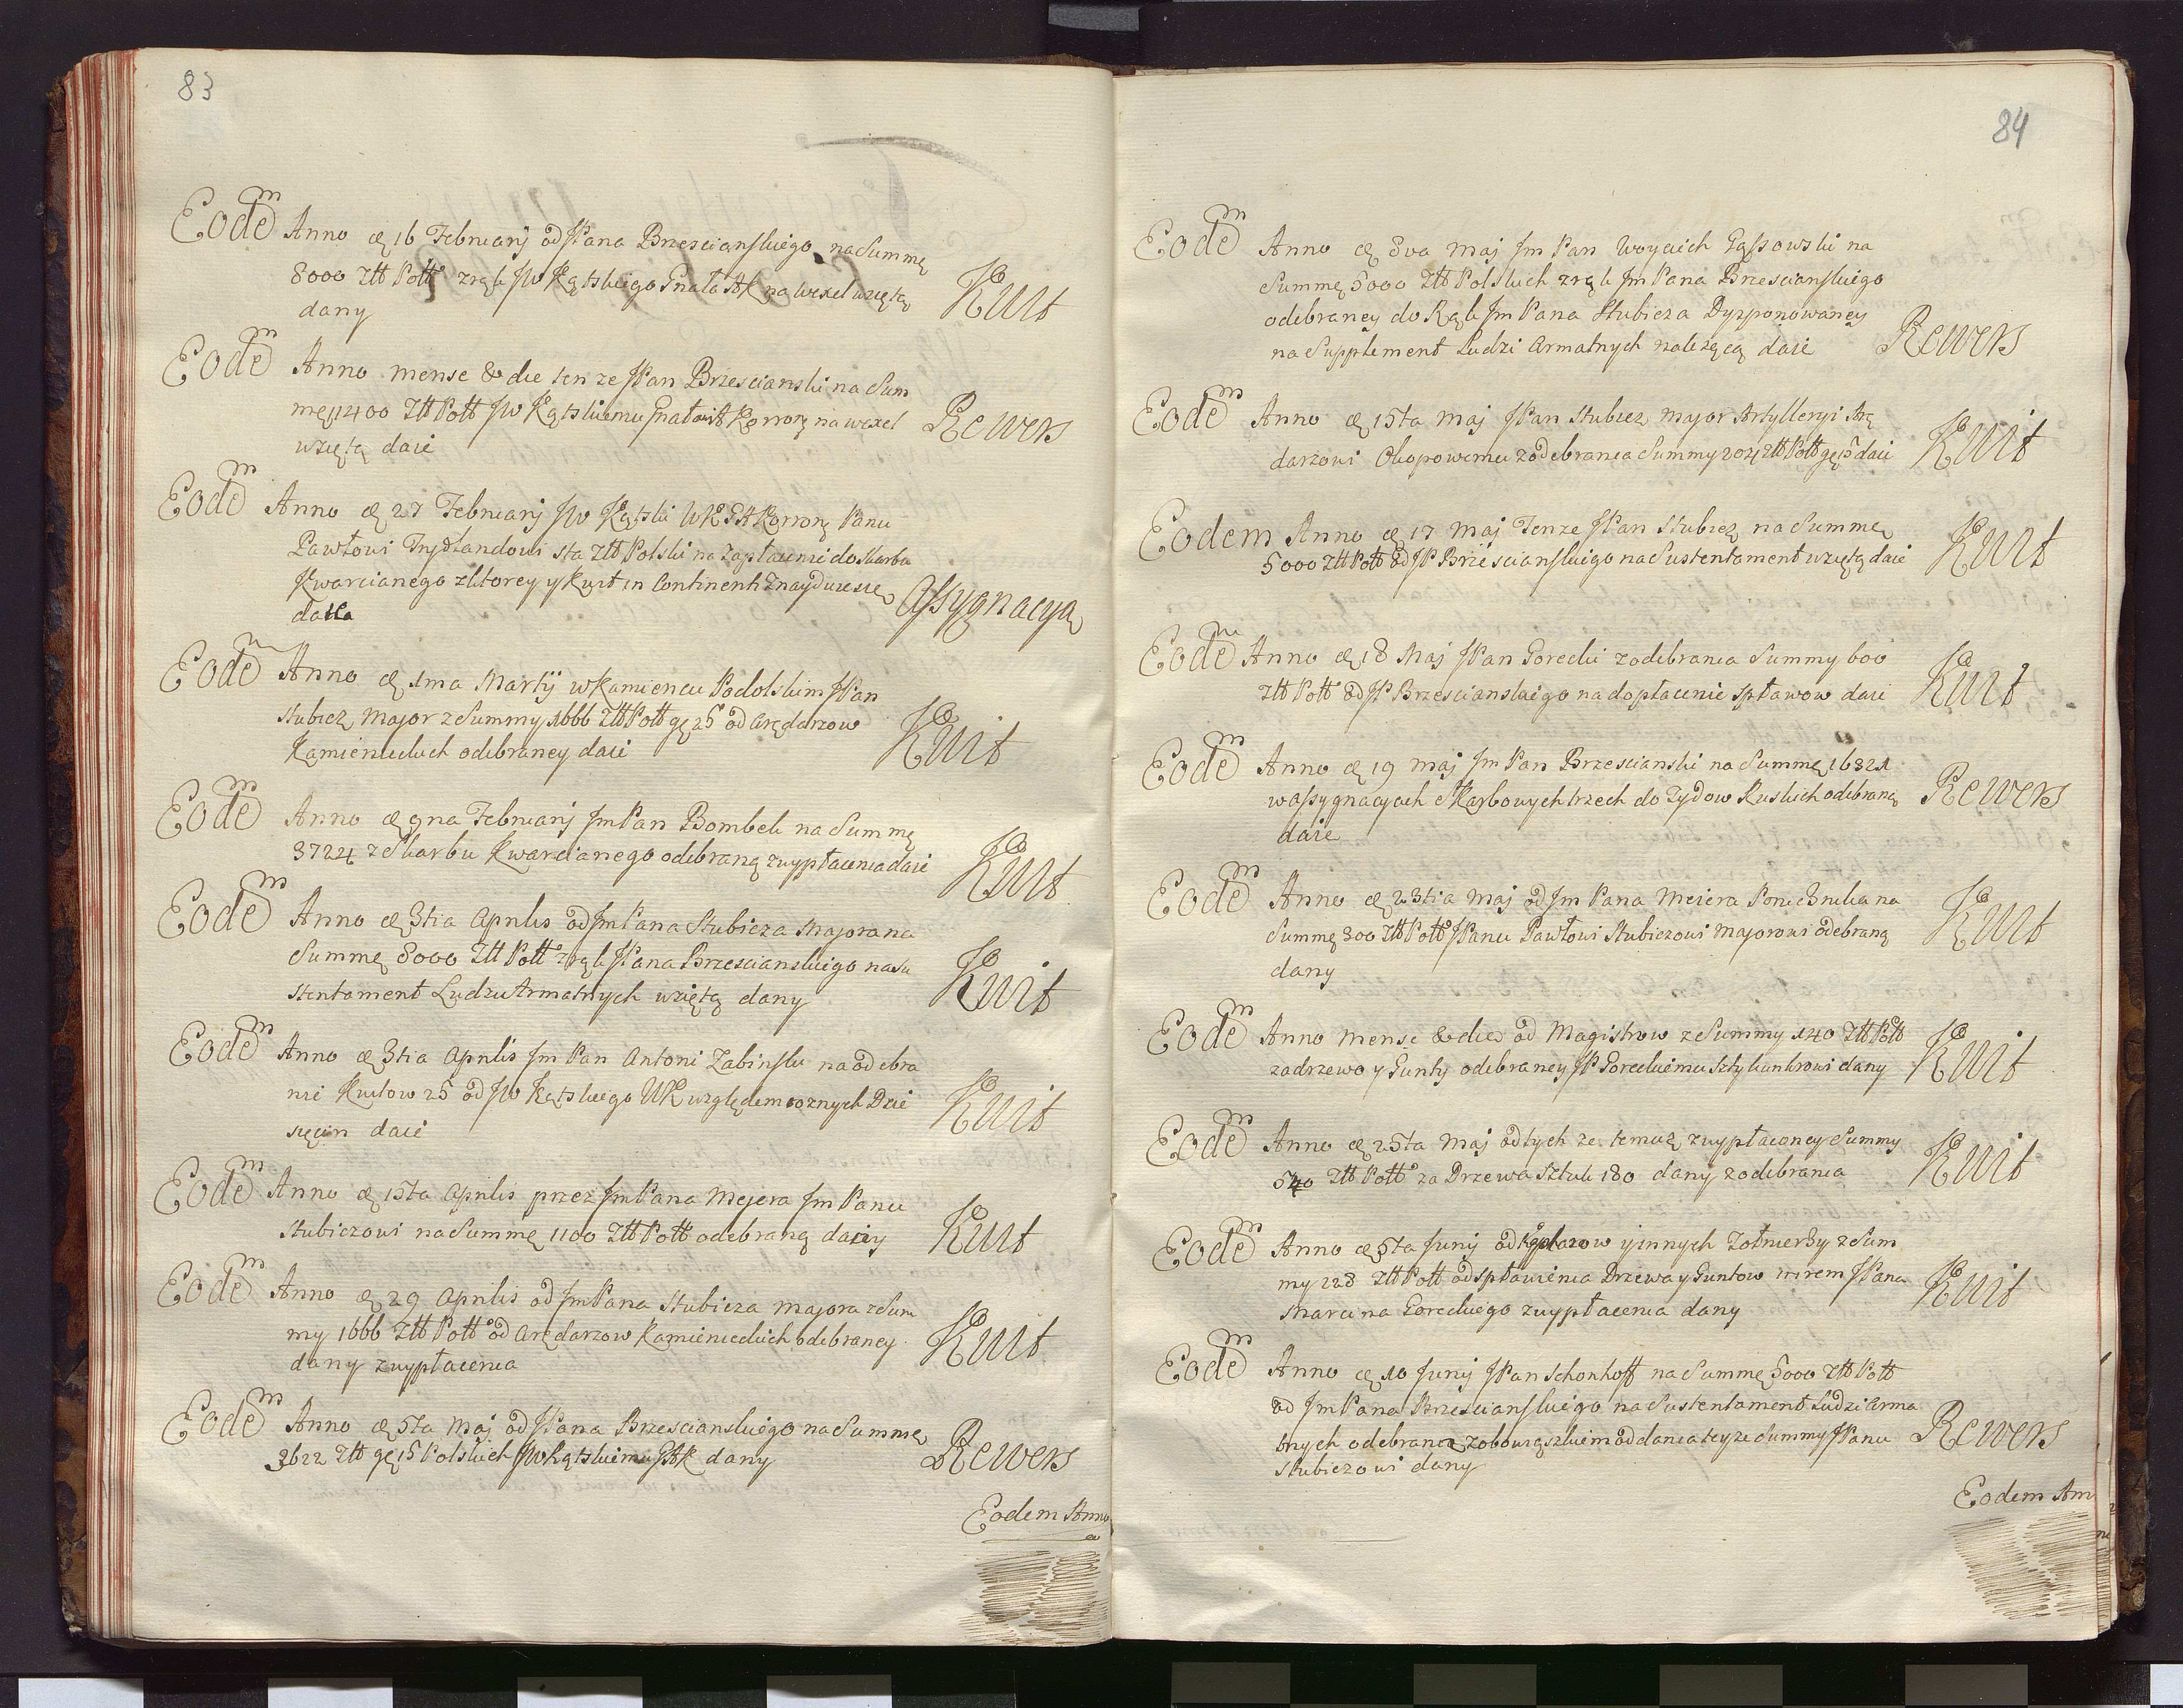 83
Eodem Anno d 16 Febrnarij od JPana Brzescianskiego na Summę
8000 Złł Polł zrąk JW Kątskiego Gnała AK na wexel wziętą
dany Kwit
Eodem Anno mense & die tenze JPan Brzescianski na Sum
mę 11400 Złł Polł JW Kątskiemu Gnałowi AKorrony na wexel
wziętą daie Rewers
Eodem Anno d 27 Februarij JW Kątski WKGAKorrony Panu
Pawłowi Frydlandowi sta Złł Polski na zapłacenie do Skarbu
Kwarcianego zktorey y Kwit in Continenti Znayduiesie
dana Assygnacya
Eodem Anno d 1ma Martij w Kamiencu Podolskim JPan
Stubicz Major z Summy 1666 Złł Polł gę 25 od Arędarzow
Kamienieckich odebraney daie Kwit
Eodem Anno d 9na Februarij Jm Pan Bombek na Summę
37224 z Skarbu Kwarcianego odebraną zwypłacenia daie Kwit
Eodem Anno d 3tia Aprilis od Jm Pana Stubicza Majora na
Summę 8000 Złł Polł zrąk JPana Brzescianskiego na Su
stentament Ludzi Armatnych wziętą dany Kwit
Eodem Anno d 3tia Aprilis Jm Pan Antoni Zabinski na odebra
nie Kwitow 25 od JW Kątskiego WK względem roznych Dzie
sięcin daie Kwit
Eodem Anno d 15ta Aprilis przez Jm Pana Mejera Jm Panu
Stubiczowi na Summę 1100 Złł Polł odebraną dany Kwit
Eodem Anno d 29 Aprilis od Jm Pana Stubicza Majora z Sum
my 1666 Złł Polł od Arędarzow Kamienieckich odebraney
dany zwypłacenia Kwit
Eodem Anno d 5ta Maj od JPana Brzescianskiego na Summę
3622 Złł gę 15 Polskich JW Kątskiemu GAK dany Rewers
Eodem Anno
84
Eodem Anno d 8va Maj Jm Pan Woyciech Gąssowski na
Summę 5000 Złł Polskich zrąk Jm Pana Brzescianskiego
odebraney do Rąk Jm Pana Stubicza Dyzponowaney
na Supplement Ludzi Armatnych nalezącą daie Rewers
Eodem Anno d 15ta Maj JPan Stubicz Major Artylleryi Arę
darzowi Okopowemu zodebrania Summy 204 Złł Polł gę 5 daie Kwit
Eodem Anno d 17 Maj Tenze JPan Stubicz na Summę
5000 Złł Polł od JP Brzescianskiego na Sustentament wziętą daie Kwit
Eodem Anno d 18 Maj JPan Gorecki zodebrania Summy 600
Złł Polł od JP Brzescianskiego na dopłacenie spławow daie Kwit
Eodem Anno d 19 Maj Jm Pan Brzescianski na Summę 16321
w Assygnacyach Skarbowych trzech do Zydow Ruskich odebraną
daie Rewers
Eodem Anno d 23tia Maj od Jm Pana Meiera Porucznika na
Summę 300 Złł Polł JPanu Pawłowi Stubiczowi Majorowi odebraną
dany Kwit
Eodem Anno Mense & die od Magistrow z Summy 140 Złł Polł
za drzewo y Gunty odebraney JP Goreckiemu Sztykunkrowi dany Kwit
Eodem Anno d 25ta Maj od tych ze temuz zwypłaconey Summy
540 Złł Polł za Drzewa Sztuk 180 dany zodebrania Kwit
Eodem Anno d 5ta Junij od Kaplarow y innych Zołnierzy z Sum
my 128 Złł Polł od spławienia Drzewa y Guntow mrem JPana
Marcina Goreckiego zwypłacenia dany Kwit
Eodem Anno d 10 Junij JPan Schonhoff na Summę 5000 Złł Polł
od Jm Pana Brzescianskiego na Sustentament Ludzi Arma
tnych odebraną zobowiązkiem oddania teyze Summy JPanu
Stubiczowi dany Rewers
Eodem Ann